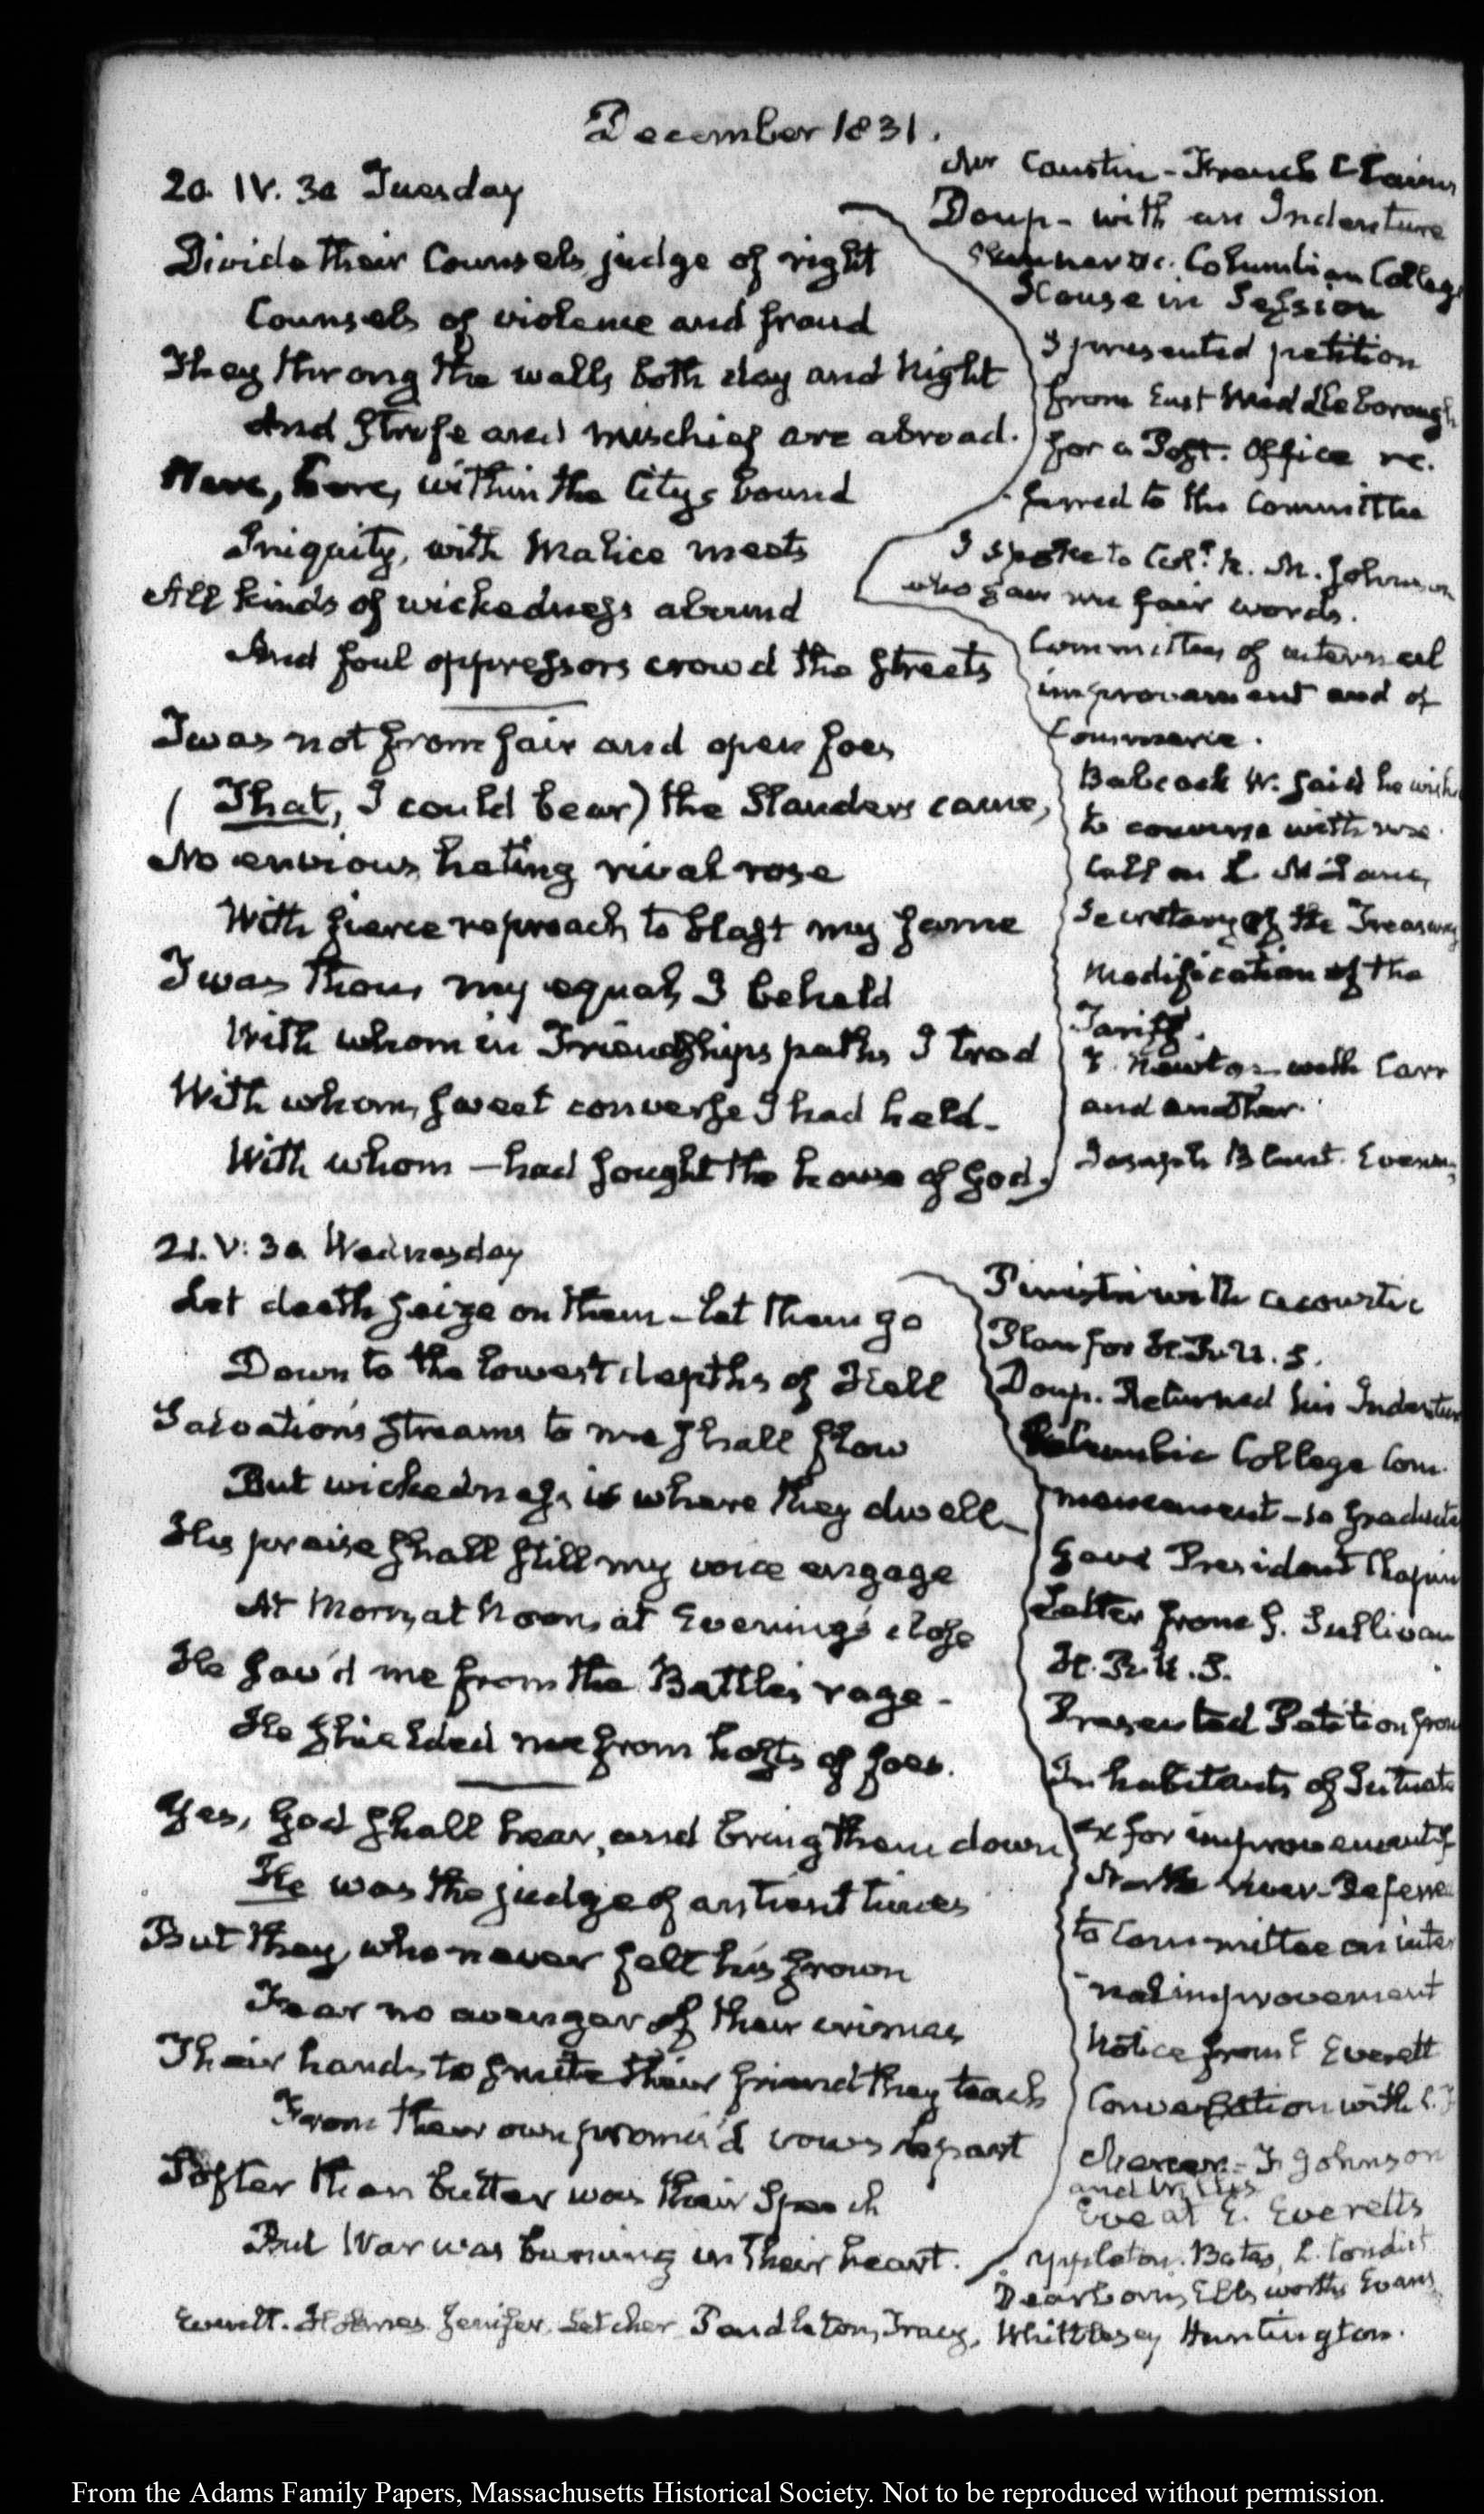 December 1831.
20. IV. 30 Tuesday
Divide their Counsels, judge of right
Counsels of violence and fraud
They throng the walls both day and Night
And Strife and mischief are abroad.
Here, here, within the City's bound
Iniquity, with Malice meets
All kinds of wickedness abound
And foul oppressors crowd the Streets
Twas not from fair and open foes
(That, I could bear) the Slanders came,
No envious, hating rival rose
With fierce reproach, to blast my fame
Twas thou, my equal, I beheld
With whom in Friendship's paths, I trod
With whom, sweet converse I had held-
With whom - had sought the house of God.
Mr Caustin - French Claims
Doup - with an Indenture
&c. Columbian College
House in Session
I presented petition
from East Middleborough
for a Post. Office re-
ferred to the Committee
I spoke to Col. R. M. Johnson
who gave me fair words.
Committees of internal
improvement and of
Commerce.
Babcock W. said he wish
to converse with me.
Call on L. McLane,
Secretary of the Treasury
Modification of the
Tariff.
T. Newton with Carr
and another.
Joseph Blunt. Evening
21. V: 30 Wednesday
Let death seize on them - let them go
Down to the lowest depths of Hell
Salvation's streams to me shall flow
But wickedness is where they dwell-
His praise shall still my voice engage
At Morn, at Noon, at Evening's close
He sav'd me from the Battle's rage-
He shielded me from hosts of foes.
Yes, God shall hear, and bring them down
He was the judge of antient times
But they, who never felt his frown
Fear no avenger of their crimes
Their hands to smite their friend they teach
From their own promis'd vows depart
Softer than butter was their Speech
But War was burning in their heart.
with acoustic
Plan for H.R.U.S.
Doup. Returned his Indenture
Columbia College Com-
mencement - 10 Graduates
Gave President Chapin
Letter from G. Sullivan
H.R.U.S.
Presented Petition from
Inhabitants of Scituate
&c for improvement of
North River - Referred
to Committee on inter
nal improvement
Notice from E Everett
Conversation with C. F
Mercer - J. Johnson
and
Eve at E. Everetts
Appleton. Bates, L. Condict
Dearborn, Ellsworth, Evans,
Everett. Holmes. Jenifer. Letcher Pendleton, Tracy, Whittlesey Huntington.
From the Adams Family Papers, Massachusetts Historical Society. Not to be reproduced without permission.